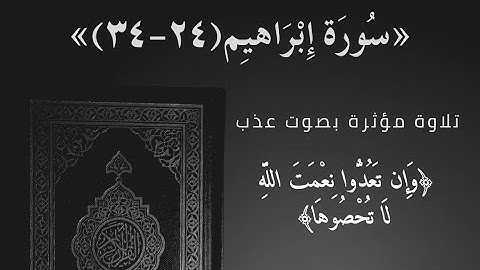 «سُورَة إِبْرَاهِيم(٢٤-٣٤)»
تلاوة مؤثرة بصوت عذب
﴿وَإِن تَعُدُّوا نِعْمَتَ اللَّهِ
لَا تُحْصُوهَا﴾